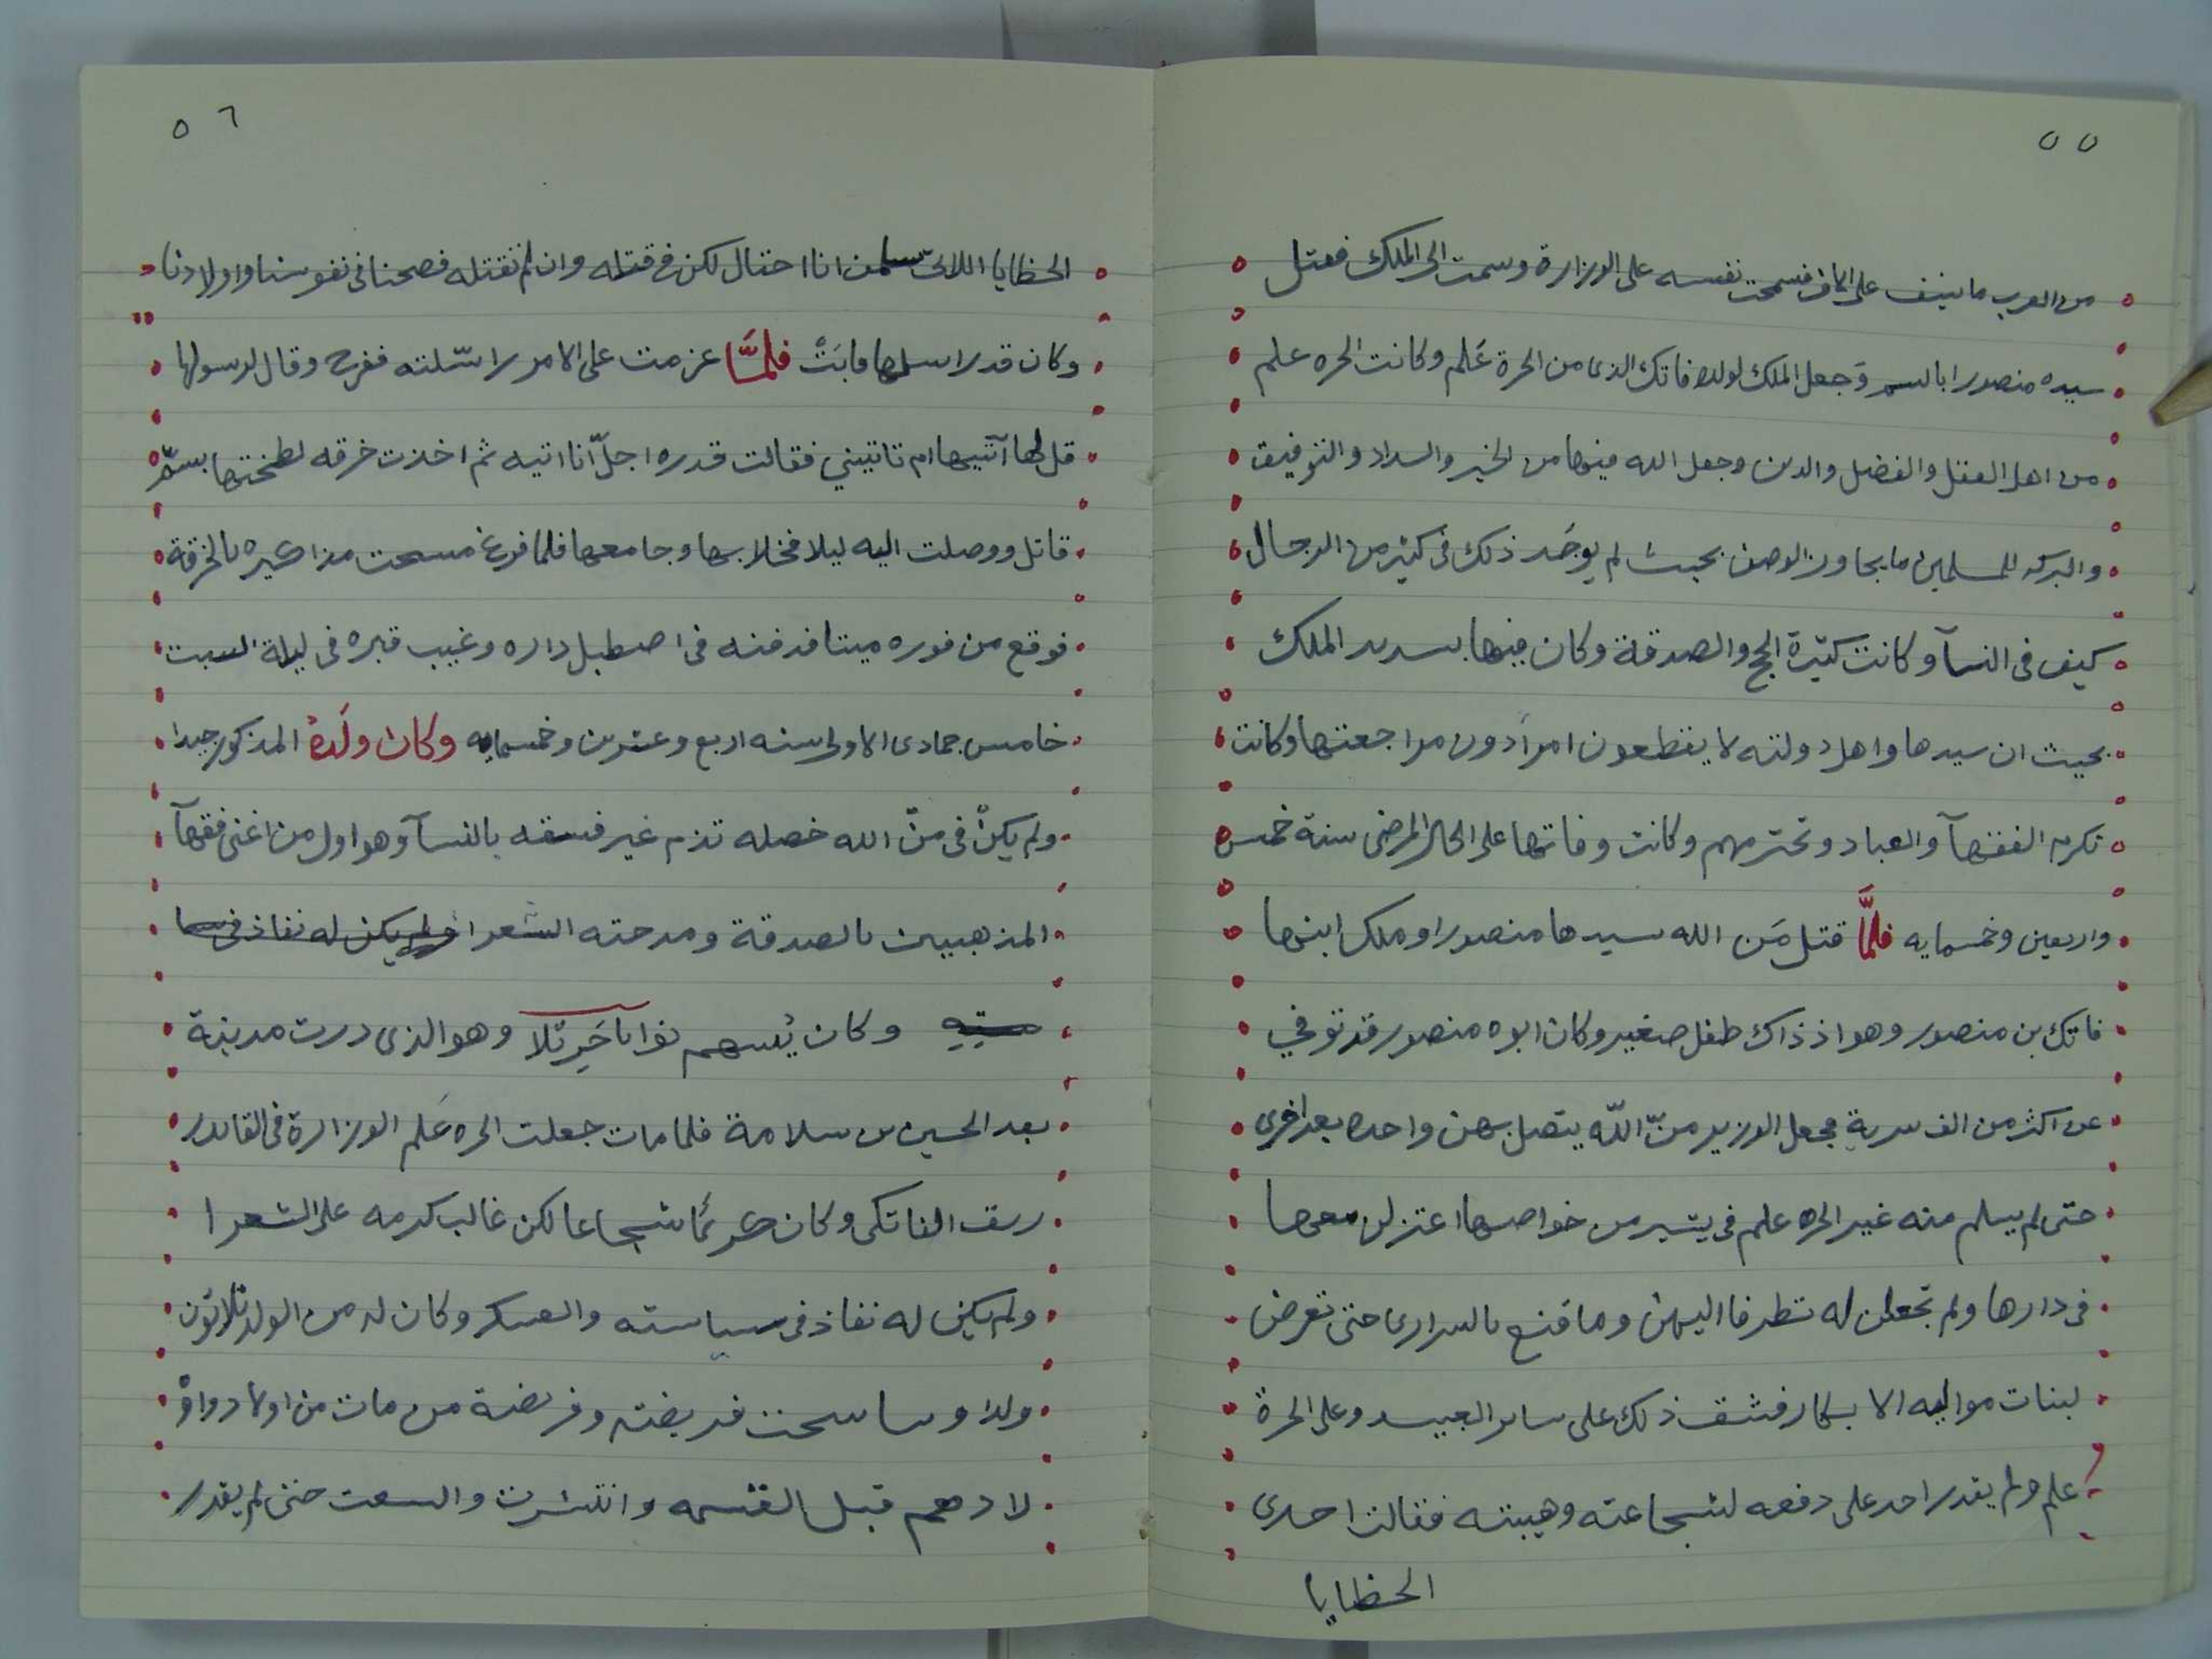 ٥٥
من العرب ما ينيف على الالف فسمحت نفسه على الوزارة وسمت الى الملك فقتل
سيده منصورا بالسم وَجعل الملك لولده فاتك الذى من الحرة عَلم وكانت الحره علم
من اهل العقل والفضل والدين وجعل الله فيها من الخير والسداد والتوفيق
والبركه للمسلمين ما يجاوز الوصف بحيث لم يوجَد ذلك فى كثير من الرجال
كيف فى النسآ وكانت كثيرة الحج والصدقة وكان فيها بسديد الملك
بحيث ان سيدها واهل دولته لا يقطعون امرًا دون مراجعتها وكانت
تكرم الفقهآ والعباد وتحترمهم وكانت وفاتها على الحال المرضى سنة خمس
واربعين وخمسمايه فلمَّا قتل مَن الله سيدها منصورا وملك ابنها
فاتك بن منصور وهو اذ ذاك طفل صغير وكان ابوه منصور قد توفي
عن اكثر من الف سرية فجعل الوزير منّ اللّه يتصل بهن واحده بعد اخرى
حتى لم يسلم منه غير الحره علم فى يسير من خواصها اعتزلن معها
فى دارها ولم تجعلن له تطرفا اليهن وما قنع بالسرارى حتى تعرض
لبنات مواليه الابكار فشق ذلك على ساير العبيد وعلى الحرة
علم ولم يقدر احد على دفعه لشجاعته وهيبته فقالت احدى
الحظايا
٥٦
الحظايا اللاتى سلمن انا احتال لكن فى قتله وان لم نقتله فصحنا فى نفوسنا واولادنا
وكان قد راسلها فابَتْ فلمَّا عزمت على الامر راسّلته ففرح وقال لرسولها
قل لها آتيها ام تاتيني فقالت قدره اجلّ انا اتيه ثم اخذت خرقه لطختها بسمّ
قاتل ووصلت اليه ليلا فخلا بها وجامعها فلما فرغ مسحت مذاكيره بالخرقة
فوقع من فوره ميتا فدفنه فى اصطبل داره وغيب قبره فى ليلة السبت
خامس جمادى الاولى سنه اربع وعشرين وخمسمايه وكان ولَدهُ المذكور جيدا
ولم يكنْ فى منّ الله خصله تذم غير فسقه بالنسآ وهو اول من اغنى فقهآ
المذهبين بالصدقة ومدحته الشعرا ولم يكن له نفاذ فى سيا
سته وكان يُسهم نوابا جَرِّ بْلا وهو الذى درب مدينة
بعد الحسين بن سلامة فلما مات جعلت الحره عَلم الوزارة فى القايد
رىق الفاتكى وكان كريمًا شجاعا لكن غالب كرمه على الشعرا
ولم يكن له نفاذ فى سياسته والعسكر وكان له من الولد ثلاثون
ولدا وساسحت فريضته وفريضة من مات من اولاد واوْ
لادهم قبل القسمه وانتشرت واتسعت حتى لم يقدر